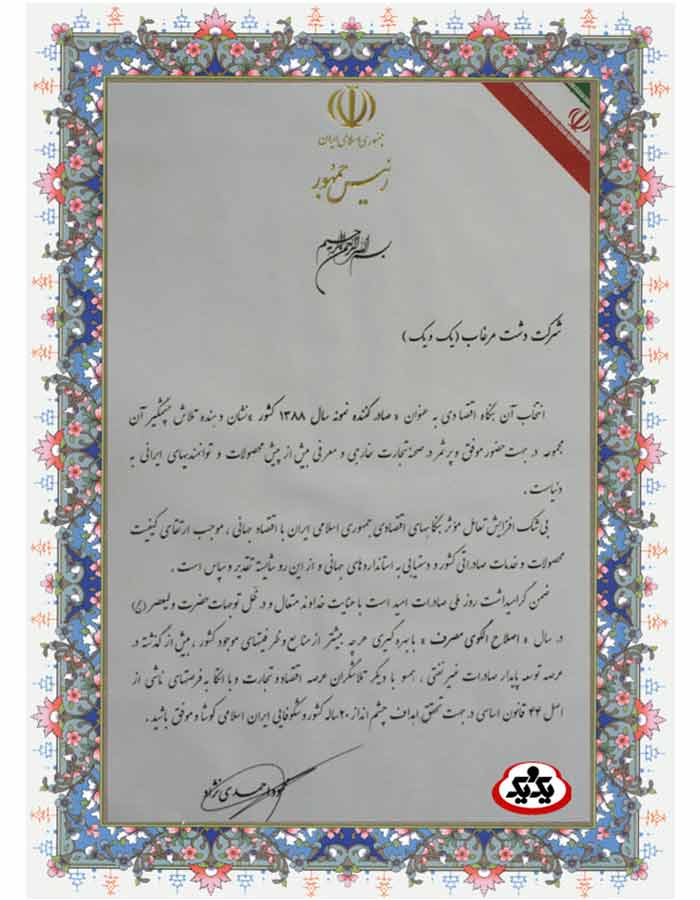 جمهوری اسلامی ایران
رئیس جمهور
بسم الله الرحمن الرحیم
شرکت دشت مرغاب (یک و یک)
انتخاب آن بنگاه اقتصادی به عنوان « صادر کننده نمونه سال ۱۳۸۸ کشور » نشان دهنده تلاش چشمگیر آن
مجموعه در جهت حضور موفق و پرثمر در صحنه تجارت خارجی و معرفی بیش از پیش محصولات و توانمندیهای ایرانی به
دنیاست .
بی شک افزایش تعامل مؤثر بنگاههای اقتصادی جمهوری اسلامی ایران با اقتصاد جهانی ، موجب ارتقای کیفیت
محصولات و خدمات صادراتی کشور و دستیابی به استانداردهای جهانی و از این رو شایسته تقدیر و سپاس است .
ضمن گرامیداشت روز ملی صادرات امید است با عنایات خداوند متعال و در ظل توجهات حضرت ولیعصر (عج)
در سال « اصلاح الگوی مصرف » با بهره گیری هر چه بیشتر از منابع و ظرفیتهای موجود کشور ، بیش از گذشته در
عرصه توسعه پایدار صادرات غیر نفتی ، همسو با دیگر تلاشگران عرصه اقتصاد و تجارت و با اتکا به فرصتهای ناشی از
اصل ۴۴ قانون اساسی در جهت تحقق اهداف چشم انداز ۲۰ ساله کشور و شکوفایی ایران اسلامی کوشا و موفق باشید .
محمود احمدی نژاد
یک و یک